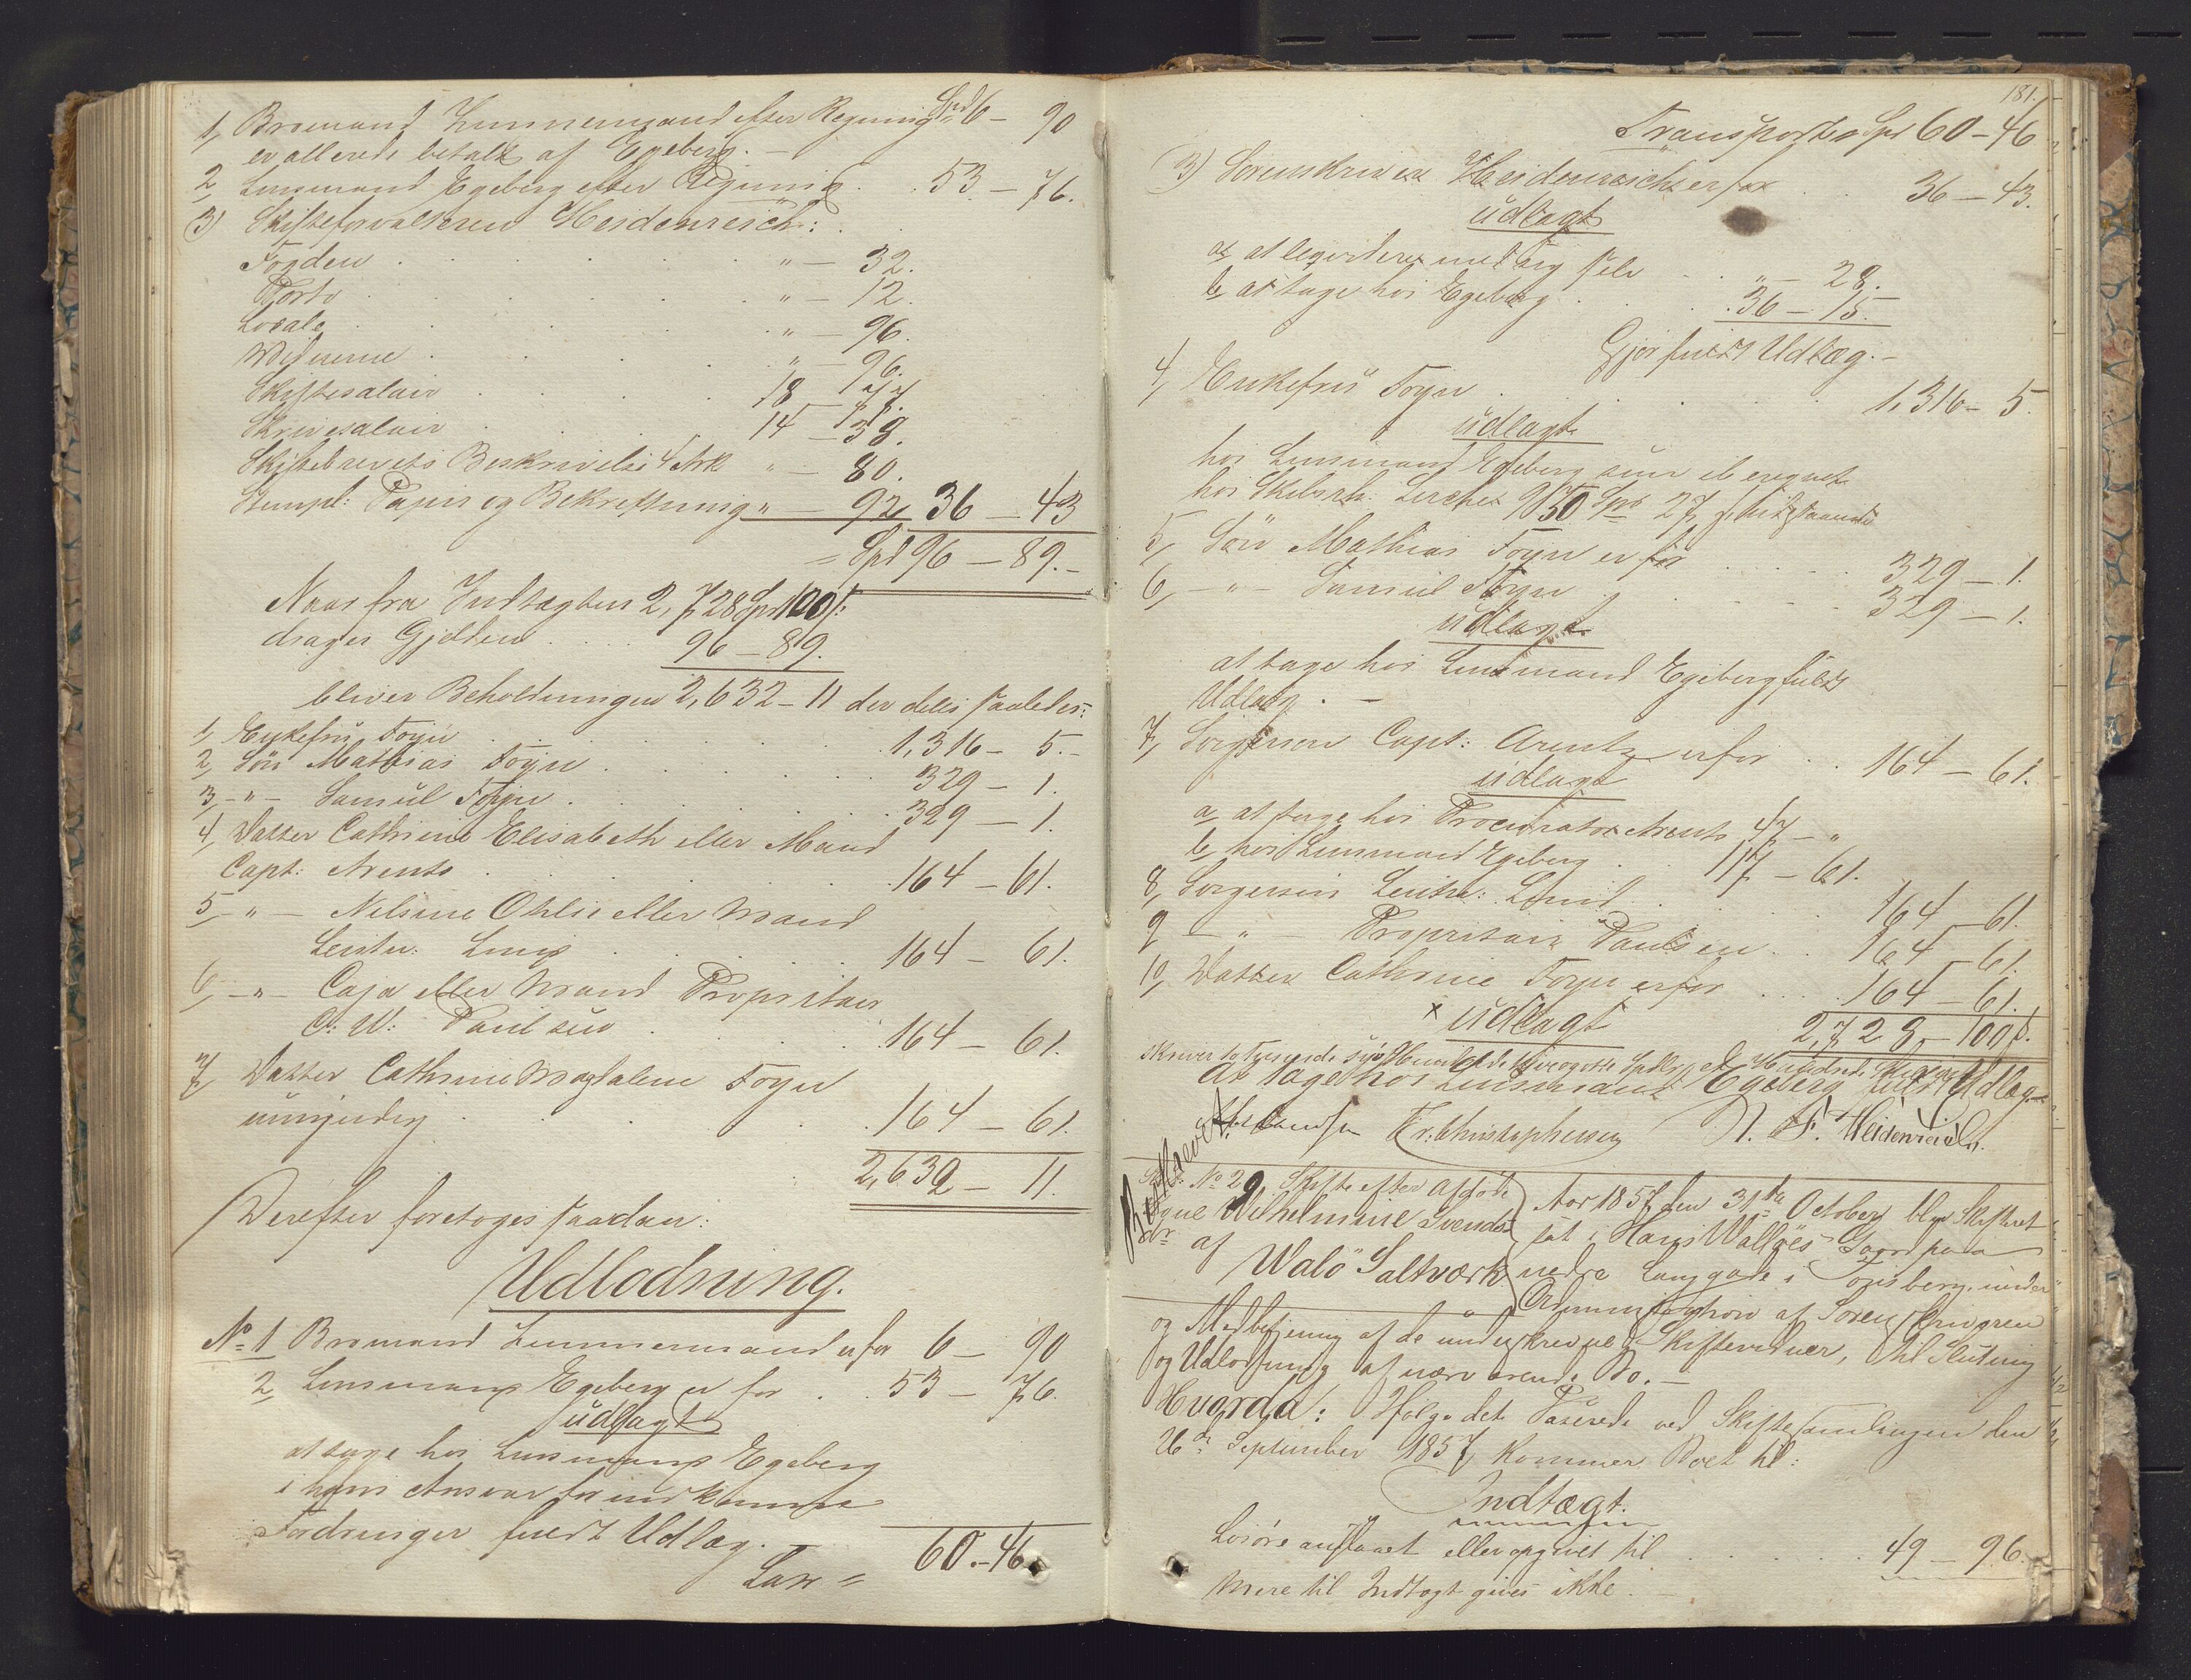 1, Bromand Lunnemand efter Regning Spd 6 – 90
er allerede betalt af Egeberg. –
2, Lensmand Egeberg efter Regning . . 53 – 76.
3) Skifteforvalteren Heidenreich:
Fogden . . . " – 32.
Porto . . . " – 12.
Locale . . . " – 96.
Vidnerne . . . " – 96.
Skiftesalair . . . 18
Skriversalair . . . 14 – 38.
Skiftebrevets Beskrivelse 4 Ark " – 80.
Stempl: Papir og Bekræftning " – 92, 36 – 43
= Spd 96 – 89. –
Naar fra Indtægten 2,728 Spd 100 s:
drages Gjelden . . . 96 – 89.
bliver Beholdningen 2,632 – 11 der deles saaledes:
1, Enkefru Foyn . . . 1,316 – 5. –
2, Sön Mathias Foyn . . . 329 – 1.
3, – " – Samuel Foyn . . . 329 – 1.
4, Datter Cathrine Elisabeth eller Mand
Capt: Arents . . . 164 – 61.
5 – " – Nilsine Othlie eller Mand
Leutn: Lund . . . 164 – 61.
6, – " – Caja eller Mand Propritair
C: W: Paulsen . . . 164 – 61.
7, Datter Cathrine Magdalene Foyn
umyndig . . . 164 – 61.
2,632 – 11.
Derefter foretoges saadan:
Udlodning.
No 1 Bromand Lunnemand er for 6 – 90
2, Lensmand Egeberg er for . . 53 – 76.
udlagt
at tage hos Lensmand Egeberg
i hans Ansvar for indkomne
Fordringer fuldt Udlæg. –
60. – 46.
Lar =
181.
Transporteres Spd 60 – 46
3) Sorenskriver Heidenreich er for . . 36 – 43.
udlagt
a, at legvidere med sig selv . . " – 28.
b, at tage hos Egeberg . . . 36 – 15.
Gjør fuldt Udlæg. –
4, Enkefru Foyn . . . 1,316 – 5.
udlagt
hos Lensmand Egeberg sum iberegnet
hos Skibsrh: Lerche 950 Spd 27, s.
5, Sön Mathias Foyn er for . . . 329 – 1.
6, – " – Samuel Foyn . . . 329 – 1.
udlagt
at tage hos Lensmand Egeberg fuldt
Udlæg. –
7, Svigersøn Capt: Arentz er for . . 164 – 61.
udlagt
a, at tage hos Procurator Arents 47 – "
b, hos Lensmand Egeberg . . 117 – 61.
8, Svigersøn Leutn: Lund . . . 164 – 61.
9 – " – Propritair Paulsen . . 164 – 61.
10, Datter Cathrine Foyn er for . . . 164 – 61.
x udlagt 2,728, – 100 s.
skriver totusinde syv Hundrede Spdlr og et Hundrede Skilling
at tage hos Lensmand Egeberg fuldt Udlæg –
Fr: Christophersen N. F. Heidenreich.
No 29. Skifte efter afdöde
Wilhelmine Svends-
dr af Walö Saltværk
Aar 1857 den 31te October blev Skifteret
sat i Hans Walløes Gaard paa
nedre Langgade i Tønsberg under
Administration af Sorenskriveren
og Medbetjening af de underskrevne Skiftevidner, til Slutning
og Udlodning af nærværende Bo. –
Hvorda: Ifølge det Passerede ved Skiftesamlingen den
26de September 1857, kommer Boet til:
Indtægt.
Losöre anslaaet eller opgivet til . . . 49 – 96.
Mere til Indtægt gives ikke.